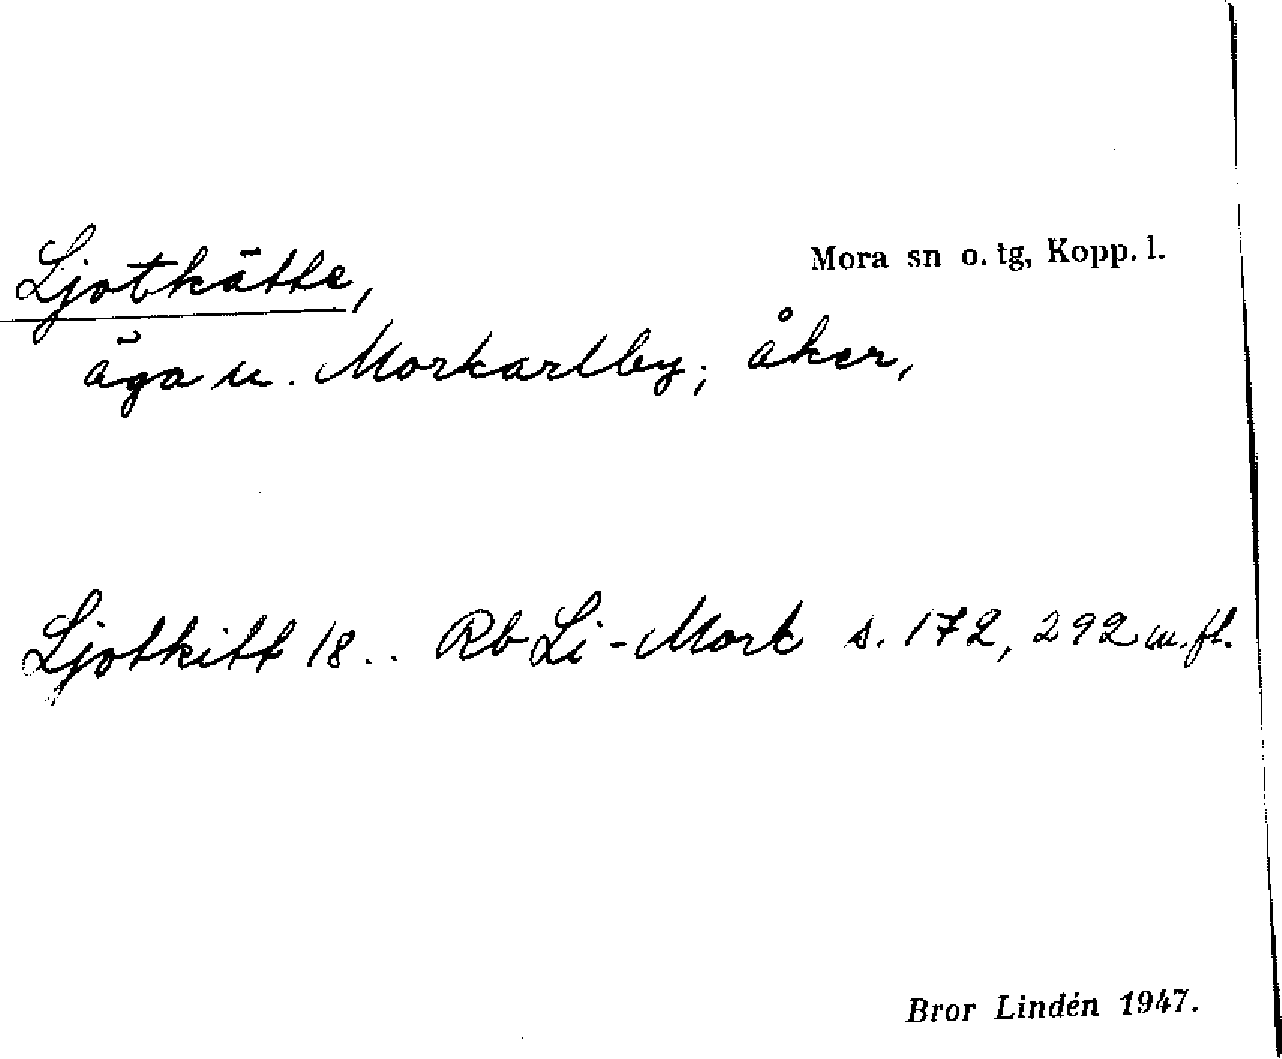 Ljotkätte,
Mora sn o. tg, Kopp. l.
äga u. Morkarlby; åker,
Ljotkitt 18.. Rb Li-Mork s. 172, 292 m.fl.
Bror Lindén 1947.